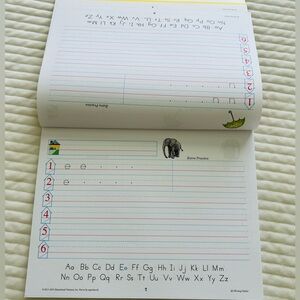 Aa Bb Cc Dd Ee Ff Gg Hh Ii Jj Kk Ll Mm
Nn Oo Pp Qq Rr Ss Tt Uu Vv Ww Xx Yy Zz
6
5
4
3
2
1 u u
Bonus Practice
Bonus Practice
1 e e
2 e
3
4
5
6
Aa Bb Cc Dd Ee Ff Gg Hh Ii Jj Kk Ll Mm
Nn Oo Pp Qq Rr Ss Tt Uu Vv Ww Xx Yy Zz